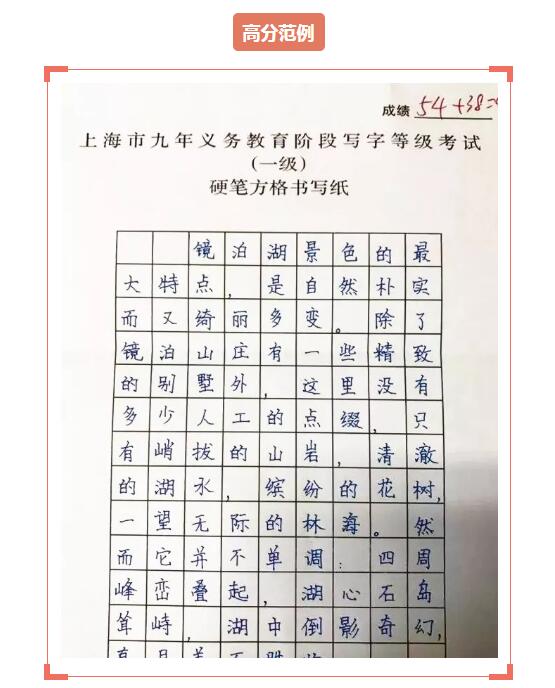 高分范例
成绩 54+38=
上海市九年义务教育阶段写字等级考试
(一级)
硬笔方格书写纸
镜泊湖景色的最
大特点，是自然朴实
而又绮丽多变。除了
镜泊山庄有一些精致
的别墅外，这里没有
多少人工的点缀，只
有峭拔的山岩，清澈
的湖水，缤纷的花树，
一望无际的林海。然
而它并不单调：四周
峰峦叠起，湖心石岛
耸峙，湖中倒影奇幻，